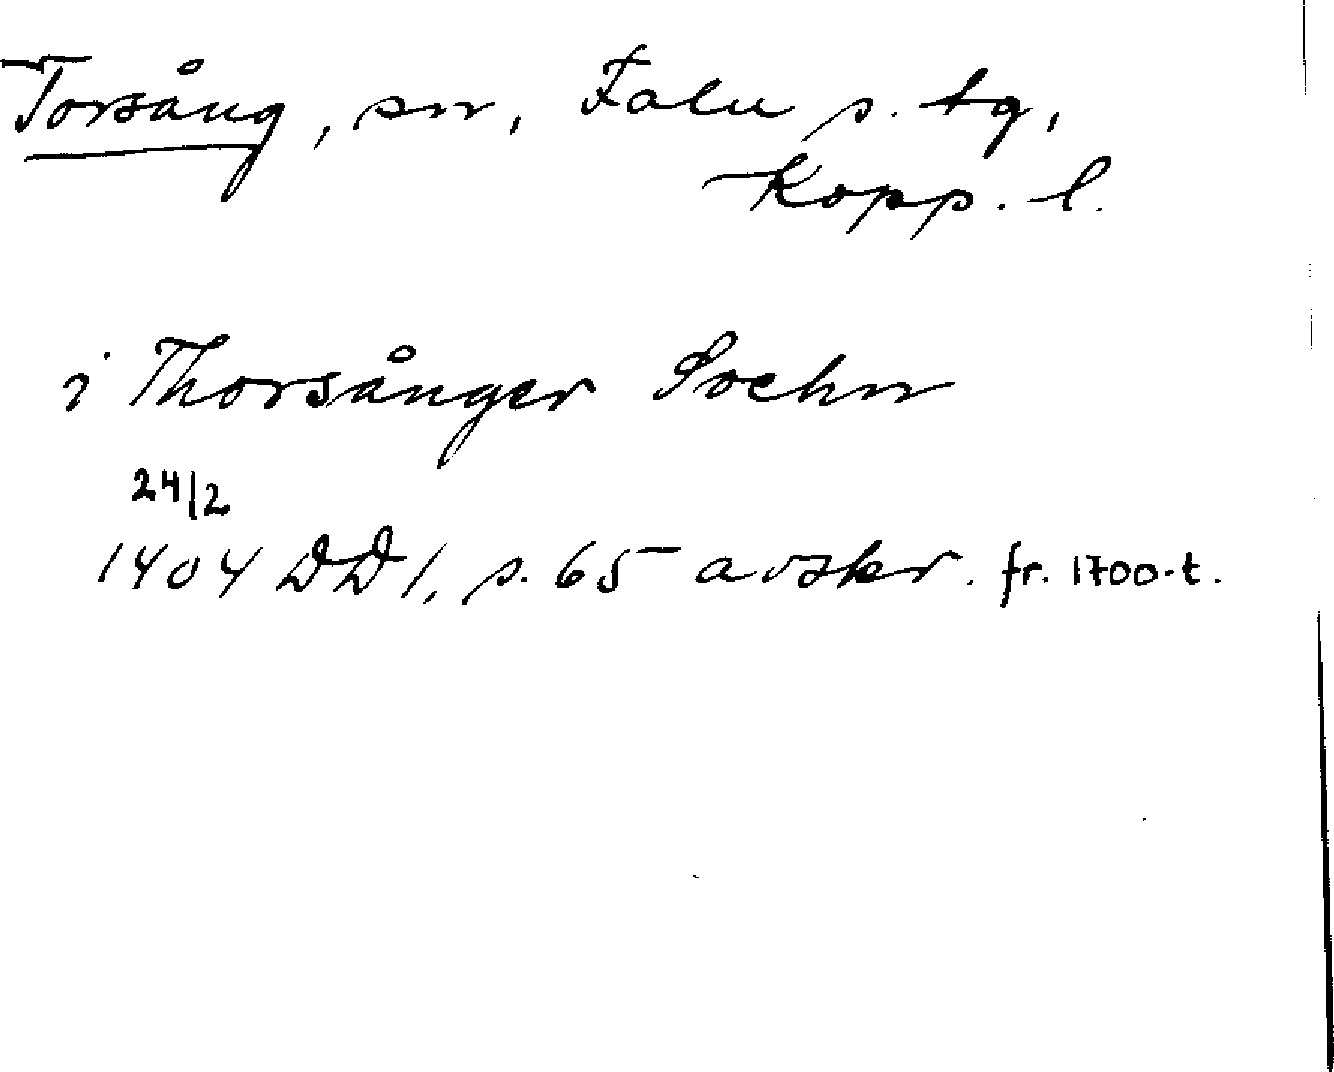 Torsång, sn, Falu s. tg,
Kopp. l.
i Thorsånger Sochn
24/2
1404 DD 1, s. 65 avskr. fr. 1700-t.